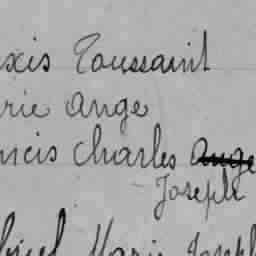 xis Toussaint
rie Ange
ncis Charles Ange
Joseph
briel Marie Joseph